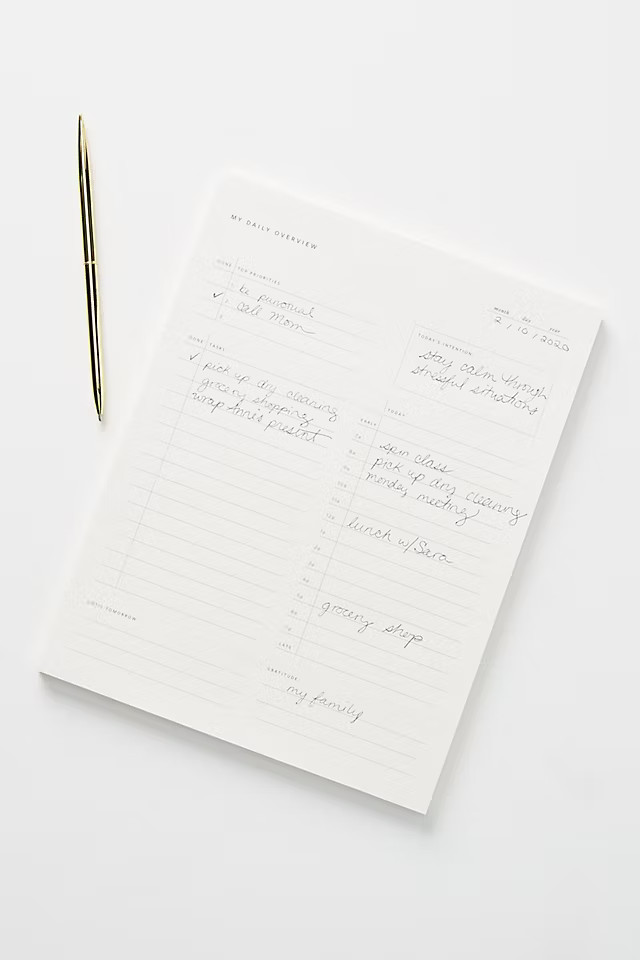 MY DAILY OVERVIEW
DONE TOP PRIORITIES
1 be punctual
✓ 2 call Mom
3
MONTH DAY YEAR
2 / 10 / 2020
TODAY'S INTENTION:
stay calm through
stressful situations
DONE TASKS
✓ pick up dry cleaning
grocery shopping
wrap present
UNTIL TOMORROW
TODAY
EARLY
7a spin class
8a pick up dry cleaning
9a monday meeting
10a
11a
12p lunch w/Sara
1p
2p
3p
4p
5p grocery shop
6p
7p
LATE
GRATITUDE:
my family